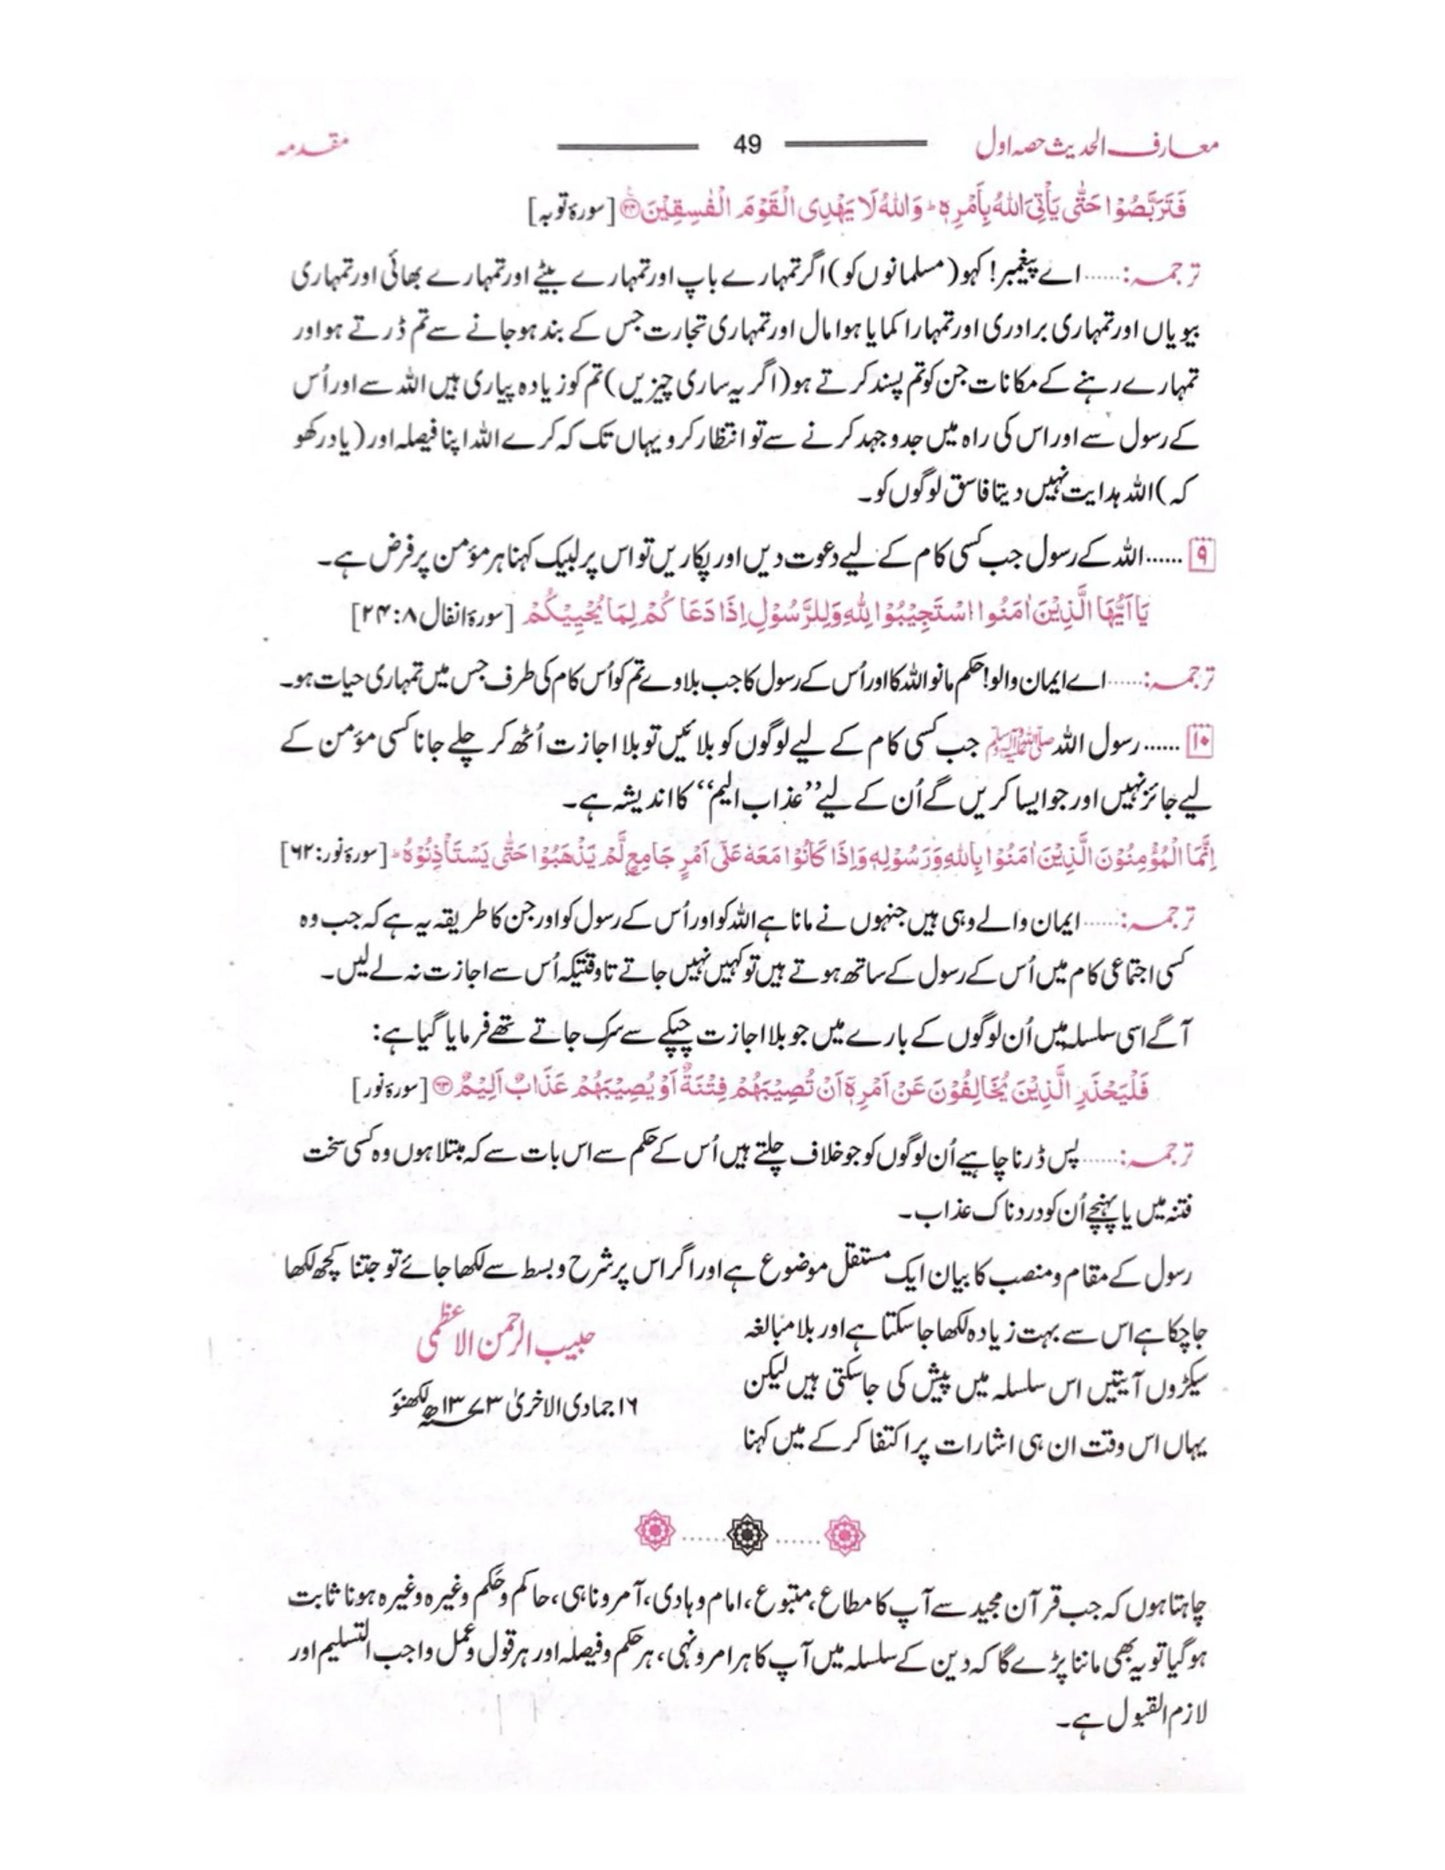 معارف الحدیث حصہ اول 49 مقدمہ
فَتَرَبَّصُوْا حَتّٰی یَاْتِیَ اللّٰهُ بِاَمْرِهٖ ؕ وَاللّٰهُ لَا یَهْدِی الْقَوْمَ الْفٰسِقِیْنَ ﴿۲۴﴾ [سورۃ توبہ]
ترجمہ:...... اے پیغمبر! کہو (مسلمانوں کو) اگر تمہارے باپ اور تمہارے بیٹے اور تمہارے بھائی اور تمہاری
بیویاں اور تمہاری برادری اور تمہارا کمایا ہوا مال اور تمہاری تجارت جس کے بند ہوجانے سے تم ڈرتے ہو اور
تمہارے رہنے کے مکانات جن کو تم پسند کرتے ہو (اگر یہ ساری چیزیں) تم کو زیادہ پیاری ہیں اللہ سے اور اُس
کے رسول سے اور اس کی راہ میں جدوجہد کرنے سے تو انتظار کرو یہاں تک کہ کرے اللہ اپنا فیصلہ اور (یاد رکھو
کہ) اللہ ہدایت نہیں دیتا فاسق لوگوں کو۔
۹ ...... اللہ کے رسول جب کسی کام کے لیے دعوت دیں اور پکاریں تو اس پر لبیک کہنا ہر مؤمن پر فرض ہے۔
یَا اَیُّهَا الَّذِیْنَ اٰمَنُوا اسْتَجِیْبُوْا لِلّٰهِ وَلِلرَّسُوْلِ اِذَا دَعَا كُمْ لِمَا یُحْیِیْكُمْ [سورۃ انفال ۸:۲۴]
ترجمہ:...... اے ایمان والو! حکم مانو اللہ کا اور اُس کے رسول کا جب بلاوے تم کو اُس کام کی طرف جس میں تمہاری حیات ہو۔
۱۰ ...... رسول اللہ ﷺ جب کسی کام کے لیے لوگوں کو بلائیں تو بلا اجازت اُٹھ کر چلے جانا کسی مؤمن کے
لیے جائز نہیں اور جو ایسا کریں گے اُن کے لیے ’’عذاب الیم‘‘ کا اندیشہ ہے۔
اِنَّمَا الْمُؤْمِنُوْنَ الَّذِیْنَ اٰمَنُوْا بِاللّٰهِ وَرَسُوْلِهٖ وَاِذَا كَانُوْا مَعَهٗ عَلٰٓی اَمْرٍ جَامِعٍ لَّمْ یَذْهَبُوْا حَتّٰی یَسْتَاْذِنُوْهُ ؕ [سورۃ نور: ۶۲]
ترجمہ:...... ایمان والے وہی ہیں جنہوں نے مانا ہے اللہ کو اور اُس کے رسول کو اور جن کا طریقہ یہ ہے کہ جب وہ
کسی اجتماعی کام میں اُس کے رسول کے ساتھ ہوتے ہیں تو کہیں نہیں جاتے تاوقتیکہ اُس سے اجازت نہ لے لیں۔
آگے اسی سلسلہ میں اُن لوگوں کے بارے میں جو بلا اجازت چپکے سے سرک جاتے تھے فرمایا گیا ہے:
فَلْیَحْذَرِ الَّذِیْنَ یُخَالِفُوْنَ عَنْ اَمْرِهٖٓ اَنْ تُصِیْبَهُمْ فِتْنَةٌ اَوْ یُصِیْبَهُمْ عَذَابٌ اَلِیْمٌ ﴿۶۳﴾ [سورۃ نور]
ترجمہ:...... پس ڈرنا چاہیے اُن لوگوں کو جو خلاف چلتے ہیں اُس کے حکم سے اس بات سے کہ مبتلا ہوں وہ کسی سخت
فتنہ میں یا پہنچے اُن کو دردناک عذاب۔
رسول کے مقام و منصب کا بیان ایک مستقل موضوع ہے اور اگر اس پر شرح و بسط سے لکھا جائے تو جتنا کچھ لکھا
جاچکا ہے اس سے بہت زیادہ لکھا جاسکتا ہے اور بلا مبالغہ
سیکڑوں آیتیں اس سلسلہ میں پیش کی جاسکتی ہیں لیکن
یہاں اس وقت ان ہی اشارات پر اکتفا کرکے میں کہنا
حبیب الرحمن الاعظمی
۱۶ جمادی الاخریٰ ۱۳۷۳ھ لکھنؤ
چاہتا ہوں کہ جب قرآن مجید سے آپ کا مطاع، متبوع، امام و ہادی، آمر و ناہی، حاکم و حَکَم وغیرہ وغیرہ ہونا ثابت
ہوگیا تو یہ بھی ماننا پڑے گا کہ دین کے سلسلہ میں آپ کا ہر امر و نہی، ہر حکم و فیصلہ اور ہر قول و عمل واجب التسلیم اور
لازم القبول ہے۔